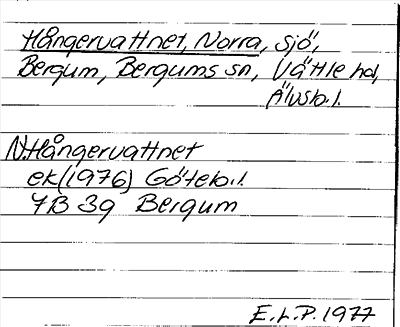 Hångervattnet, Norra, sjö,
Bergum, Bergums sn, Vättle hd,
Älvsb.l.
N. Hångervattnet
ek (1976) Göteb.l.
7B 3g Bergum
E.L.P. 1977